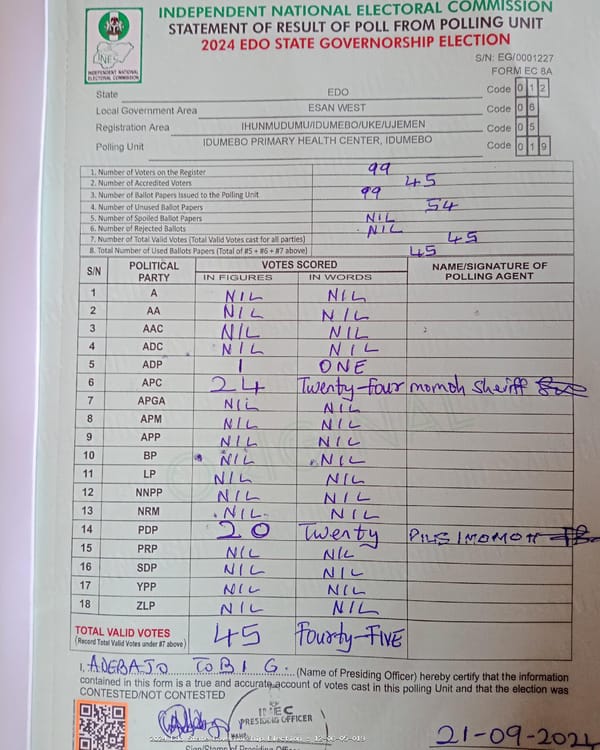 INDEPENDENT NATIONAL ELECTORAL COMMISSION
STATEMENT OF RESULT OF POLL FROM POLLING UNIT
2024 EDO STATE GOVERNORSHIP ELECTION
INEC
INDEPENDENT NATIONAL
ELECTORAL COMMISSION
S/N: EG/0001227
FORM EC 8A
State EDO Code 0 1 2
Local Government Area ESAN WEST Code 0 6
Registration Area IHUNMUDUMU/IDUMEBO/UKE/UJEMEN Code 0 5
Polling Unit IDUMEBO PRIMARY HEALTH CENTER, IDUMEBO Code 0 1 9
1. Number of Voters on the Register 99
2. Number of Accredited Voters 45
3. Number of Ballot Papers Issued to the Polling Unit 99
4. Number of Unused Ballot Papers 54
5. Number of Spoiled Ballot Papers NIL
6. Number of Rejected Ballots NIL
7. Number of Total Valid Votes (Total Valid Votes cast for all parties) 45
8. Total Number of Used Ballots Papers (Total of #5 + #6 + #7 above) 45
S/N POLITICAL PARTY VOTES SCORED NAME/SIGNATURE OF POLLING AGENT
IN FIGURES IN WORDS
1 A NIL NIL
2 AA NIL NIL
3 AAC NIL NIL
4 ADC NIL NIL
5 ADP 1 ONE
6 APC 24 Twenty-four momoh Sheriff
7 APGA NIL NIL
8 APM NIL NIL
9 APP NIL NIL
10 BP NIL NIL
11 LP NIL NIL
12 NNPP NIL NIL
13 NRM NIL NIL
14 PDP 20 Twenty PIUS IMOMOH
15 PRP NIL NIL
16 SDP NIL NIL
17 YPP NIL NIL
18 ZLP NIL NIL
TOTAL VALID VOTES 45 Fourty-FIVE
(Record Total Valid Votes under #7 above)
I, ADEBAJO TOBI G. (Name of Presiding Officer) hereby certify that the information
contained in this form is a true and accurate account of votes cast in this polling Unit and that the election was
CONTESTED/NOT CONTESTED
INEC
PRESIDING OFFICER
21-09-2024
Sign/Stamp of Presiding Officer